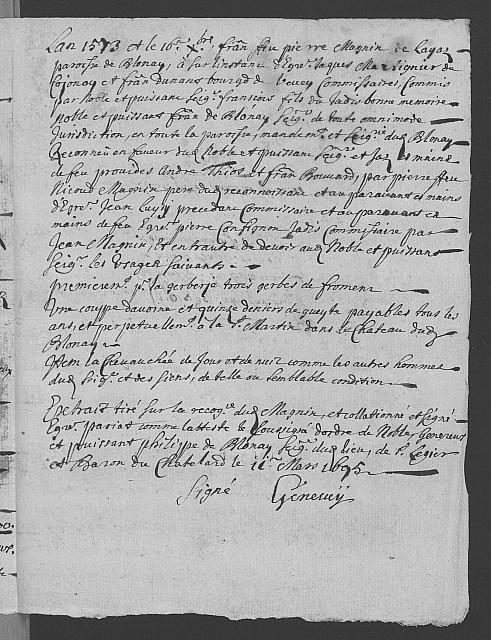 Lan 1573 et le 16.e Xbre, frãn feu pierre Magnin de Layaz
paroisse de Blonay, à sur linstance d'Egre. Jaques
et frãn Dunant bourg.s de Vevey Commissaires, Commis
par Noble et puissant Seig.r fransions fils du Jadis bonne memoire
noble et puissant frãn de Blonay Seig.r de toute omnimode
Jurisdiction, en toute la paroisse, mandem.t et Seig.rie dud. Blonay
Reconneu en faveur dud. Noble et puissant Seig.r et
de feu provides Andre Thiot et frãn Bouvard, par pierre feu
Nicoud Magnin pere dud. reconnoissant et auparavant es mains
d'Egre. Jean precedant Commissaire et auparavant es
mains de feu Egre. pierre Jadis Commissaire par
Jean Magnin, Et en traute de devoir aud. Noble et puissant
Seig.r les Usages suivants
premierem.t p.r la gerberie trois gerbes de froment
Une coupe davoine et quinze deniers de payables tous les
ans, et perpetuellem.t à la S.t Martin dans le Chateau dud.
Blonay
Item la Chevauchée de Jour et de nuit comme les autres hommes
dud. Seig.r et des siens, de telle ou semblable condition
Extrait tiré sur la recog.ce dud. Magnin, et collationné et signé
Egre. pariat comme latteste le soussigné dordre de Noble, Genereux
et puissant philippe de Blonay Seig.r dud. lieu, de S.t Legier
et Baron du Chatelard le 11.e Mars 1695
Signé Genevey